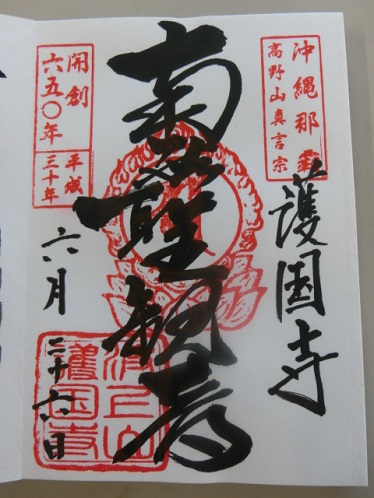 沖縄那覇
高野山真言宗
護国寺
南無聖観音
開創
六五〇年
平成
三十年
六月
二十六日
波上山
護国寺